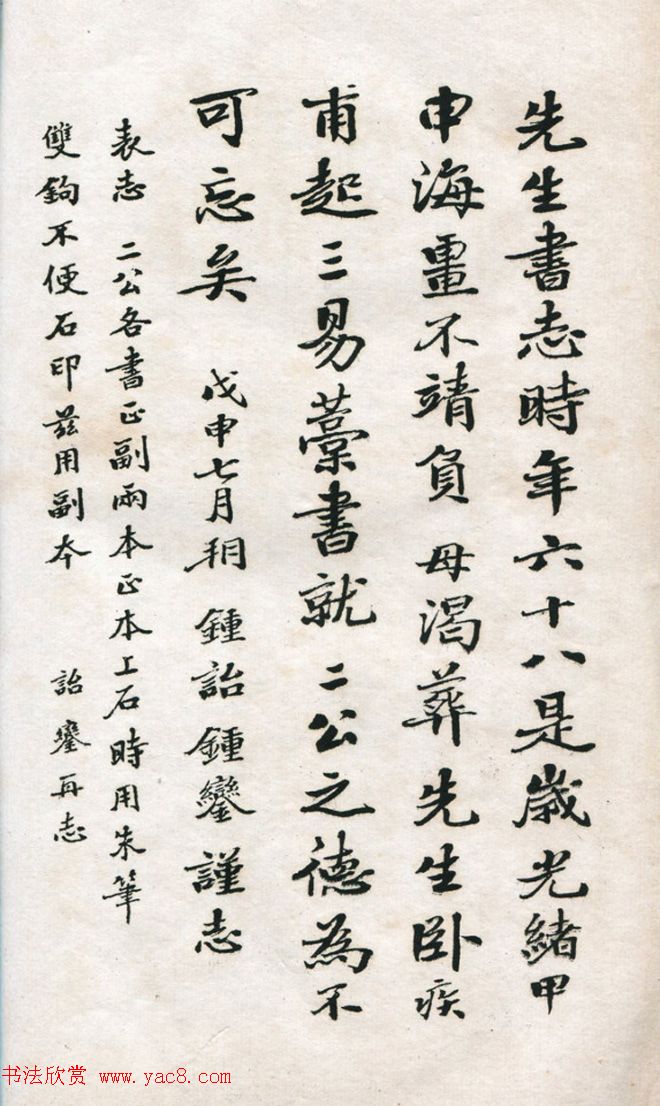 先生書志時年六十八是歲光緒甲
申海畺不靖負母渴葬先生卧疾
甫起三易藳書就二公之德為不
可忘矣 戊申七月朔 鍾詒鍾鑾謹志
表志 二公各書正副兩本正本上石時用朱筆
雙鉤不便石印茲用副本 詒鑾再志
书法欣赏 www.yac8.com